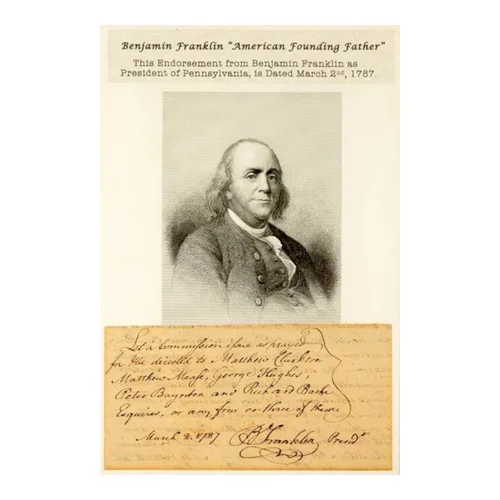 Benjamin Franklin "American Founding Father"
This Endorsement from Benjamin Franklin as
President of Pennsylvania, is Dated March 2nd, 1787.
Let a Commission issue as prayed
for be directed to Matthew Clarkson
Matthew Mease, George Hughes,
Peter Baynton and Richard Bache
Esquires, or any four or three of them
March 2. 1787
B Franklin Presdt